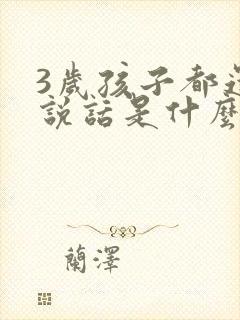 3歲孩子都
說話是什麼
蘭澤